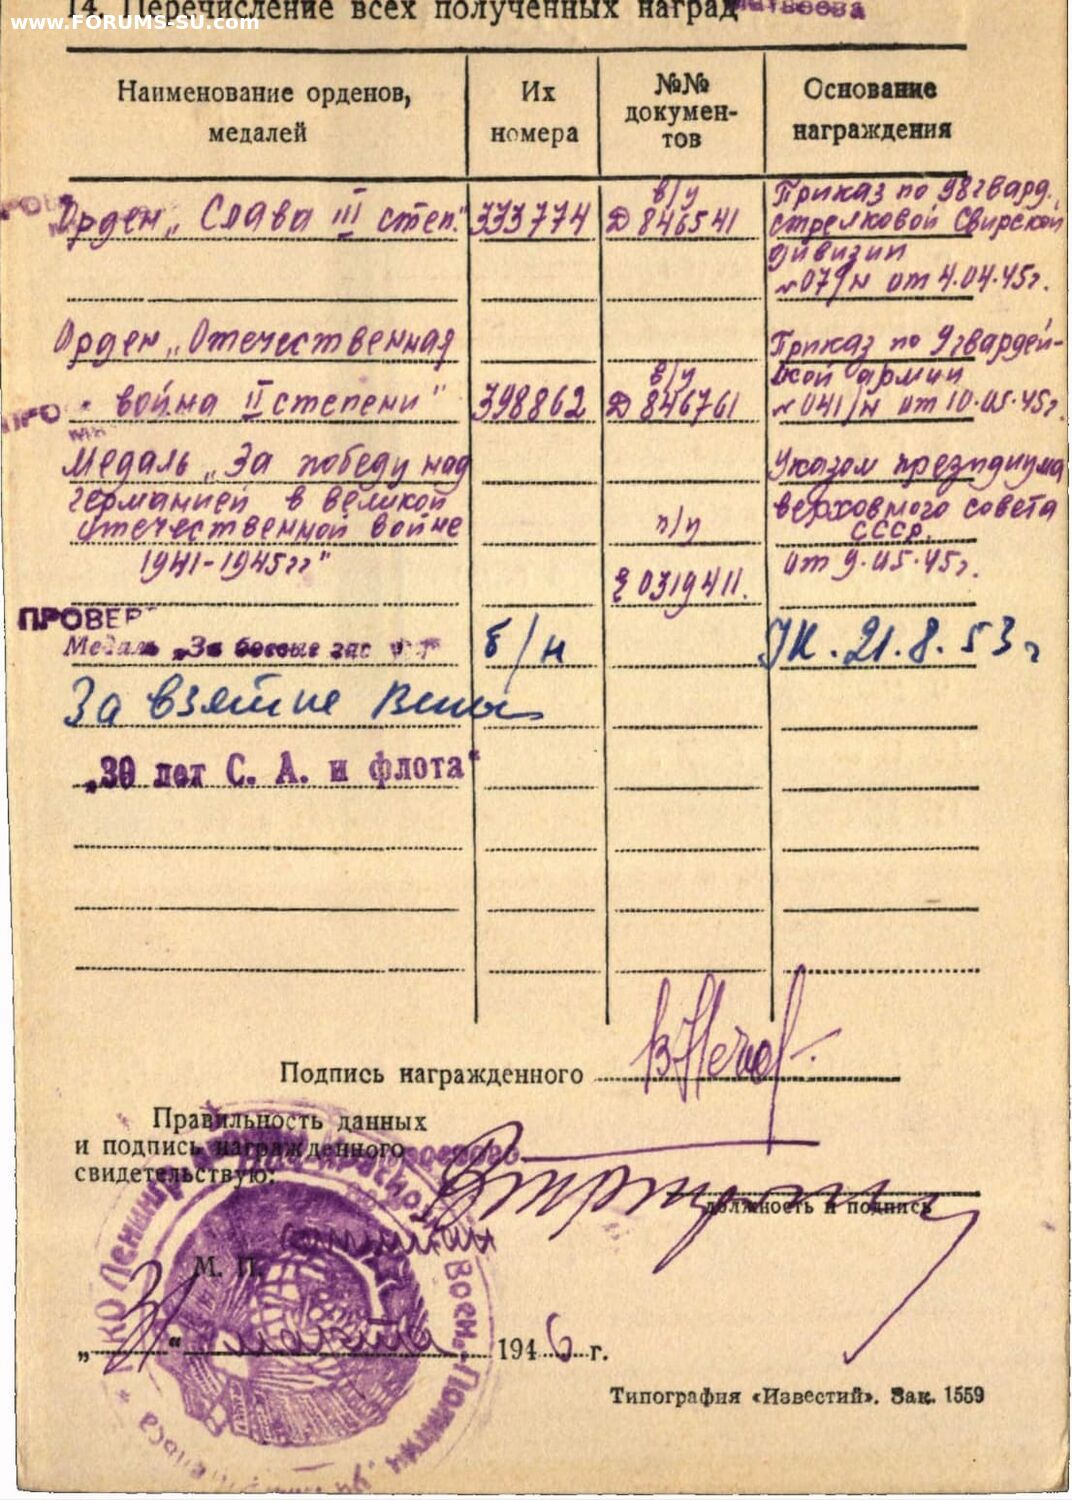 14. Перечисление всех полученных наград
www.FORUMS-SU.com
Наименование орденов, медалей
Их номера
№№ докумен-
тов
Основание награждения
Орден „Слава III степ." 333774
в/у
Д 846541
Приказ по 98 гвард.
стрелковой Свирской
дивизии
№ 079/н от 4.04.45г.
Орден „Отечественная
война II степени" 398862
в/у
Д 846761
Приказ по 9 гвардей-
ской армии
№ 041/н от 10.05.45г.
Медаль „За победу над
германией в великой
отечественной войне
1941-1945гг"
п/у
Е 0319411.
Указом президиума
верховного совета
СССР.
от 9.05.45г.
ПРОВЕР
Медаль „За боевые зас
б/н
УК. 21.8.53г
За взятие Вены
„30 лет С. А. и флота"
Подпись награжденного
Правильность данных
и подпись награжденного
свидетельствую:
должность и подпись
М. П.
„31" марта 1946 г.
Типография «Известий». Зак. 1559
НКО Ленингр Краснозн Воен.-Полит